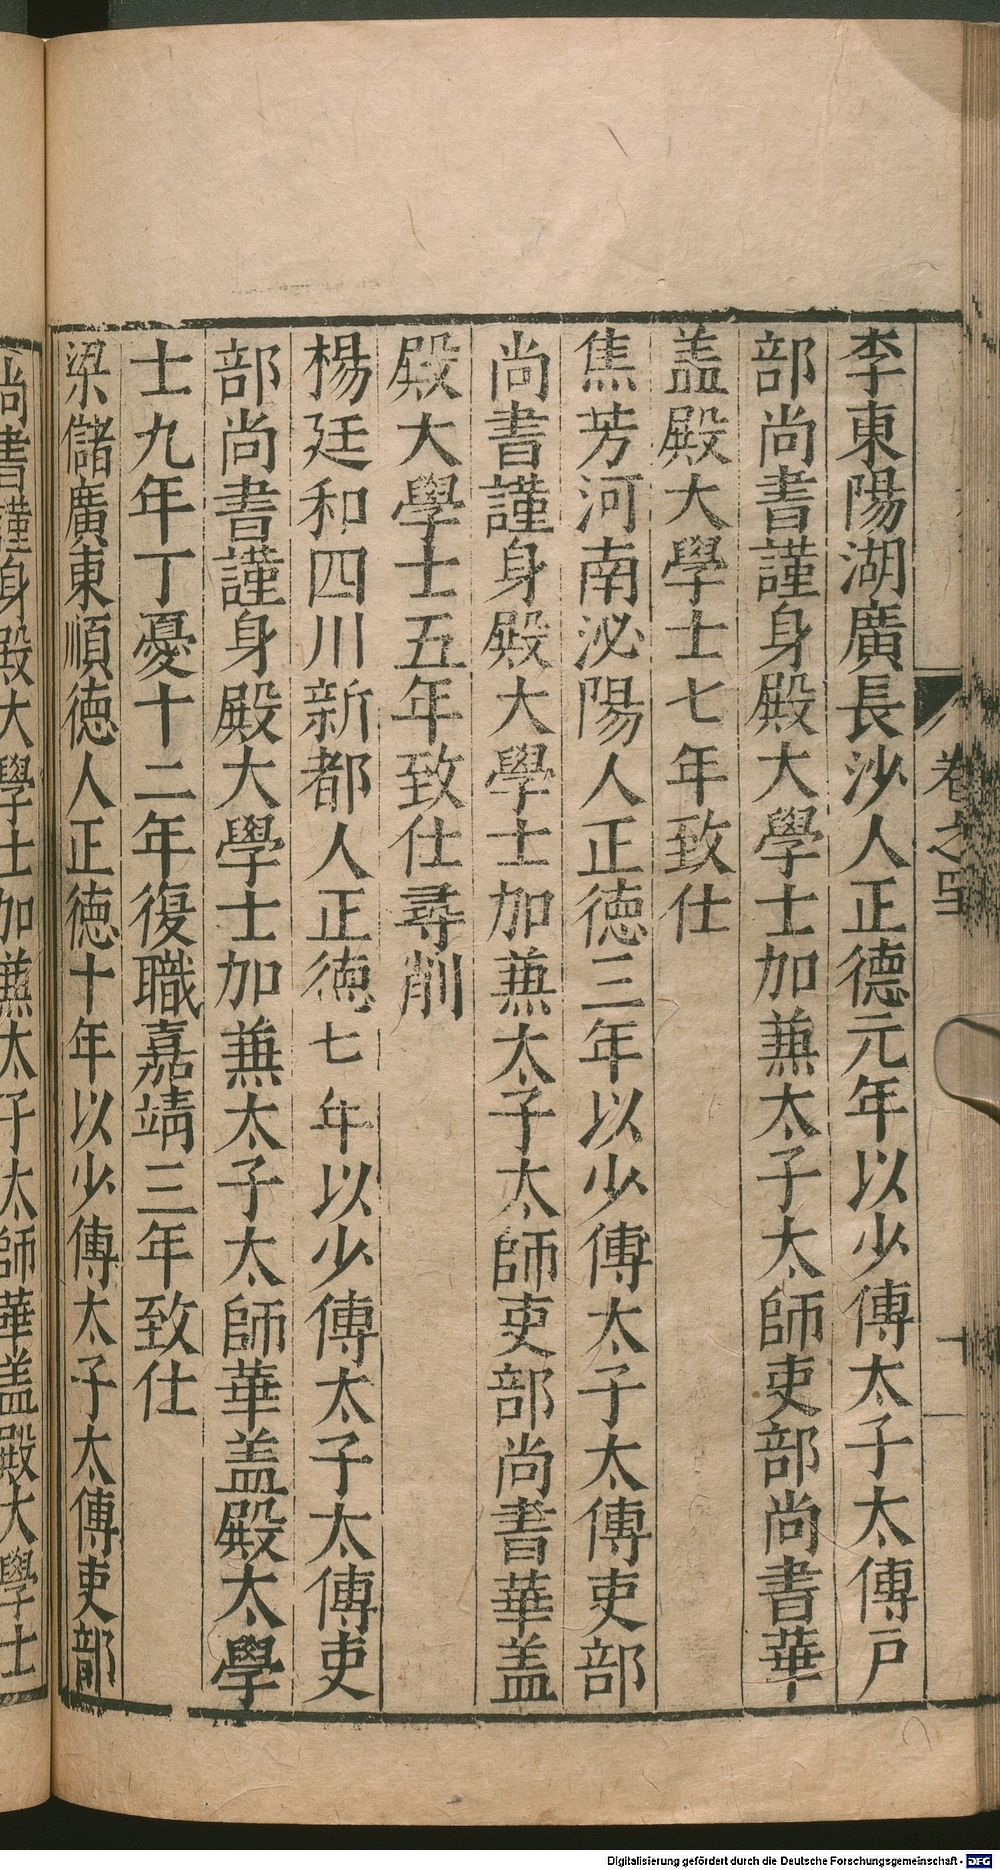 卷之四
十
李東陽湖廣長沙人正德元年以少傅太子太傅戶
部尚書謹身殿大學士加蒹太子太師吏部尚書華
盖殿大學士七年致仕
焦芳河南泌陽人正德三年以少傅太子太傅吏部
尚書謹身殿大學士加蒹太子太師吏部尚書華盖
殿大學士五年致仕尋削
楊廷和四川新都人正德七年以少傅太子太傅吏
部尚書謹身殿大學士加蒹太子太師華盖殿太學
士九年丁憂十二年復職嘉靖三年致仕
梁儲廣東順德人正德十年以少傅太子太傅吏部
尚書謹身殿大學士加蒹太子太師華盖殿大學士
Digitalisierung gefördert durch die Deutsche Forschungsgemeinschaft - DFG